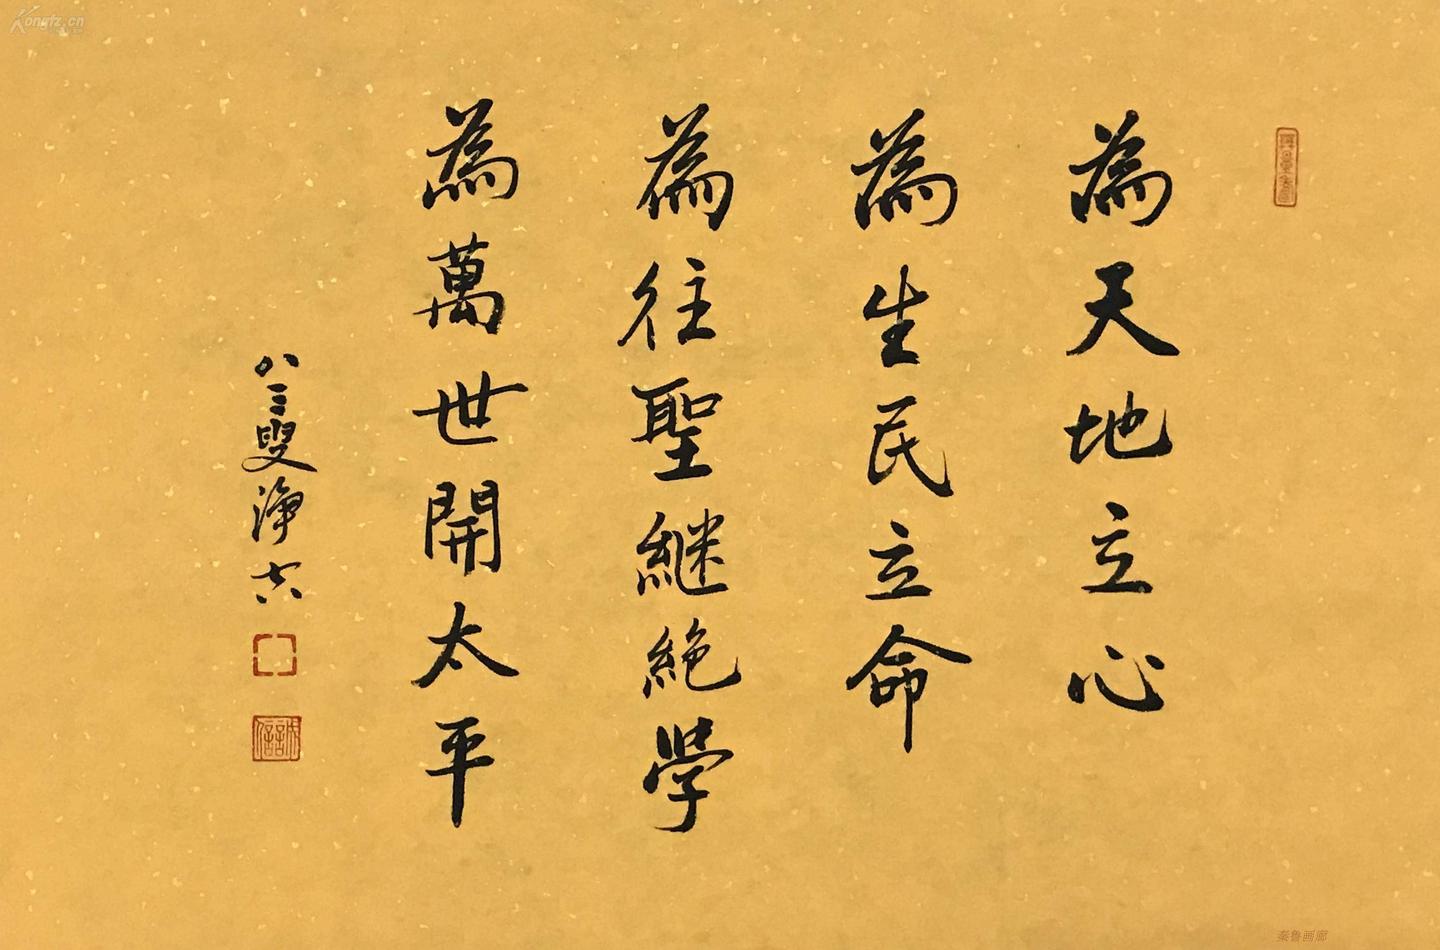 為天地立心
為生民立命
為往聖継絶学
為萬世開太平
八三叟淨六
Kongfz.cn
秦鲁画廊